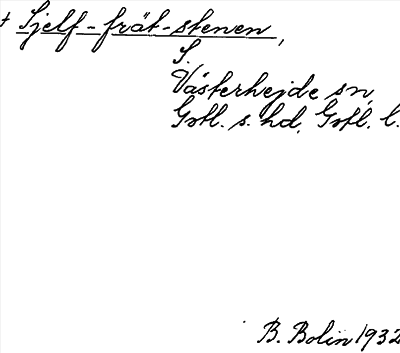 † Sjelf-frät-stenen,
S.
Västerhejde sn,
Gotl. s. hd, Gotl. l.
B. Bolin 1932